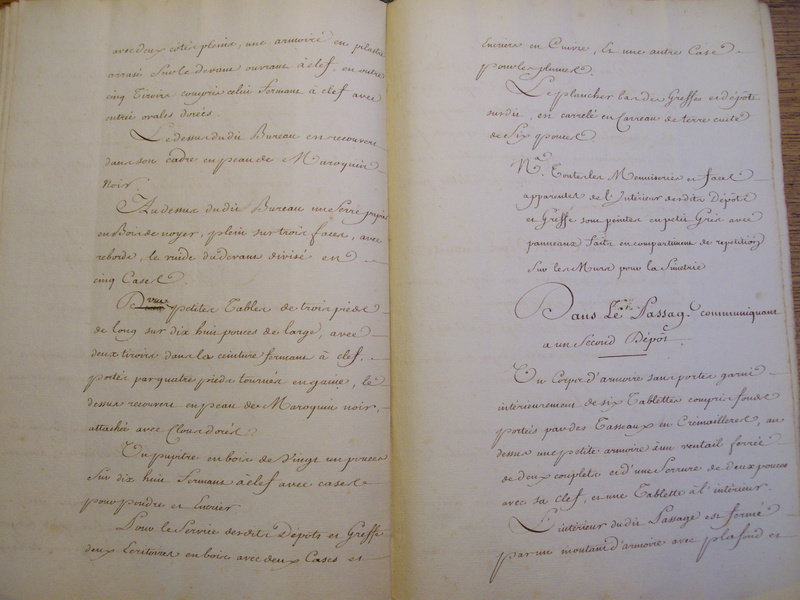 avec deux cotés pleins, une armoire en pilastre
arrasé sur le devant ouvrant à clef, en outre
cinq Tiroirs compris celui fermant à clef avec
entrée ovales dorées.
Le dessus dudit Bureau en recouvert
dans son cadre en peau de Maroquin
Noir.
Au dessus dudit Bureau une Serre papier
en Bois de noyer, plein sur trois faces, avec
rebords, le vuide du devant divisé en
cinq Cases.
petites Tables de trois pieds
de long sur dix huit pouces de large, avec
deux tiroirs dans la ceinture fermans à clef,
portés par quatre pieds tournés en gaine, le
dessus recouvert en peau de Maroquin noir,
attachée avec Clous dorés.
Un pupitre en bois de vingt un pouces
sur dix huit fermans à clef avec cases
pour poudre et Encrier
Pour le Service desdits Dépôts et Greffe
deux Ecritoires en bois avec deux Cases et
Encriers en Cuivre, Et une autre Case
pour les plumes.
Le plancher bas des Greffes et dépots
susdits, en carrelé en Carreau de terre cuite
de Six pouces
Na. Toutes les Menuiseries et faces
apparentes de l'Intérieur desdits Dépôts
et Greffe sont peintes en petit Gris avec
panneaux faits en compartiment de repetition
sur les Murs pour la Simetrie
Dans Le Passage communiquant
a un Second Dépôt
Un Corps d'armoire sans portes garni
intérieurement de six Tablettes compris fonds
portés par des Tasseaux en Crémailleres, au
dessus une petite armoire à un ventail ferrée
de deux couplets et d'une Serrure de deux pouces
avec sa clef, et une Tablette à l'intérieur.
L'intérieur dudit Passage est formé
par un montant d'armoire avec plafond et